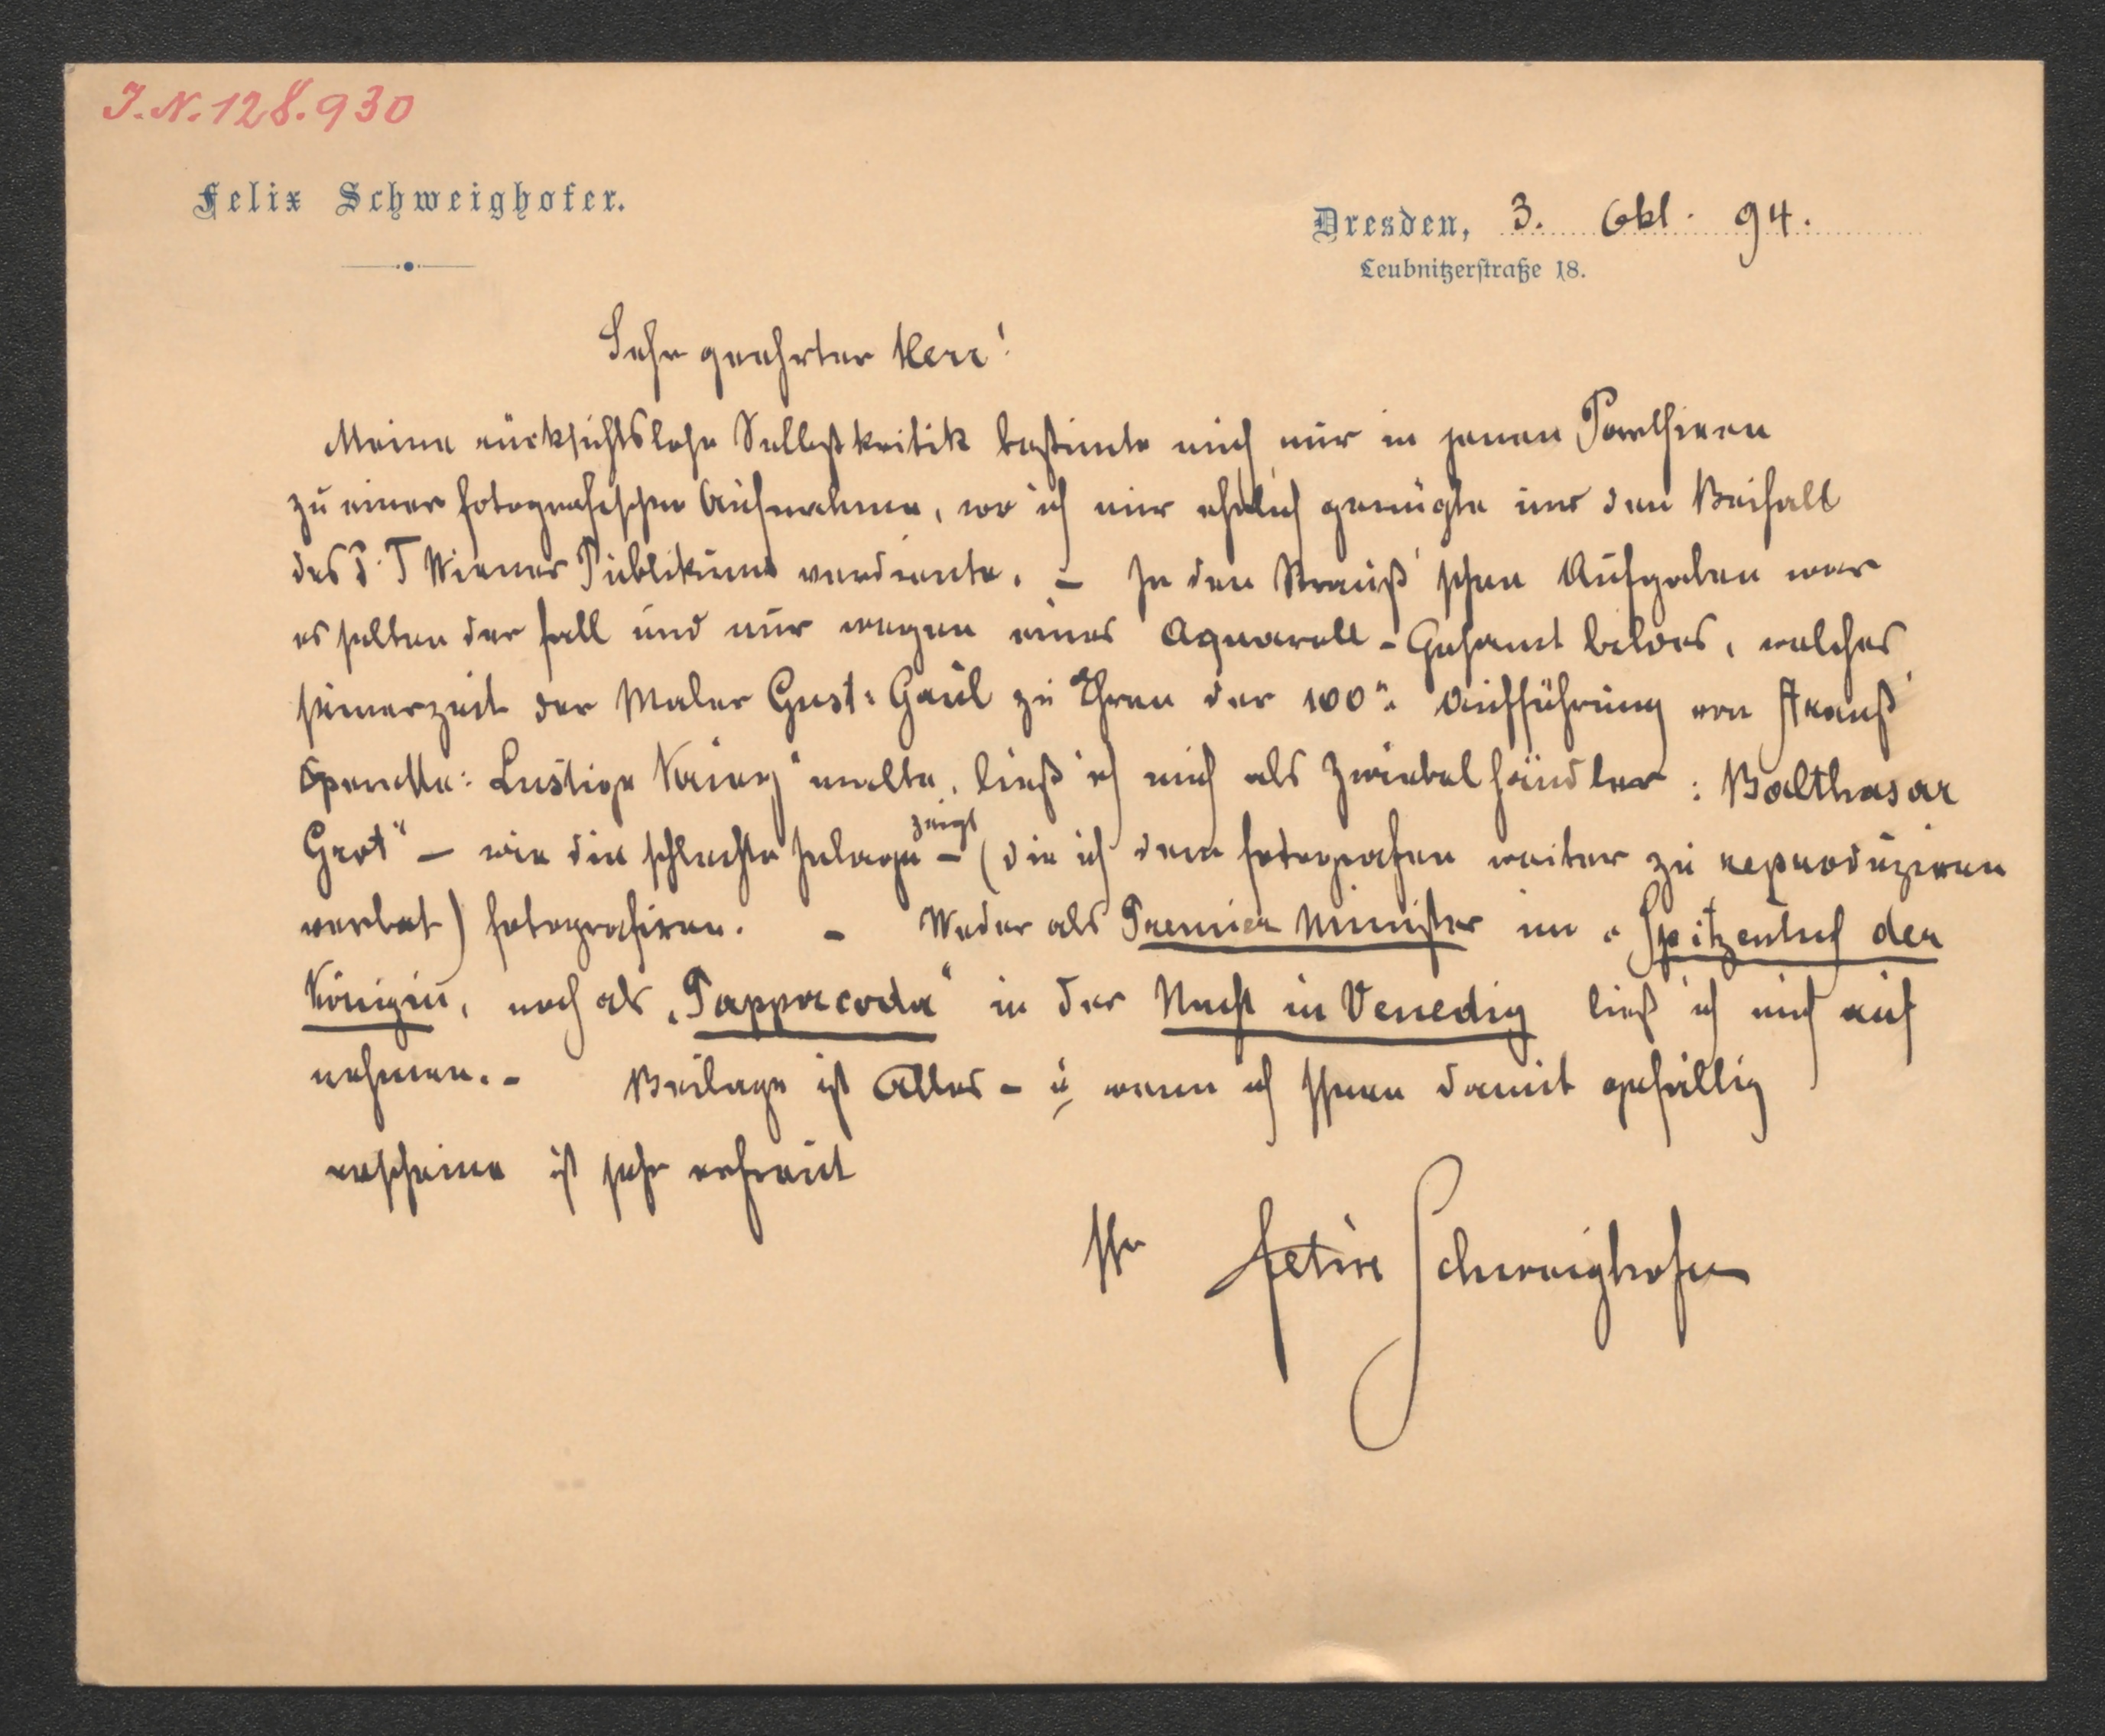 J.N. 128.930
Felix Schweighofer.
Dresden, 3. Okt. 94.
Leubnitzerstraße 18.
Sehr geehrter Herr!
Meine rücksichtslose Selbstkritik bestimte mich nur in jenen Parthieen
zu einer fotografischen Aufnahme, wo ich mir ehrlich genügte und den Beifall
des P. T Wiener Publikums verdiente. – In den Strauß'schen Aufgaben war
es selten der Fall und nur wegen eines Aquarell-Gesamt bildes, welches
seinerzeit der Maler Gust: Gaul zu Ehren der 100n: Aufführung von Strauß'
Operette: Lustige Krieg" malte, ließ ich mich als Zwiebelhändler: Balthasar
Grot" – wie die schlechte Inlage zeigt – (die ich dem Fotografen weiter zu reproduziren
verbat) fotografiren. – Weder als Premier Minister im „Spitzentuch der
Königin, noch als „Pappacoda" in der Nacht in Venedig ließ ich mich auf
nehmen. – Beilage ist Alles – u wenn ich Ihnen damit gefällig
erscheine ist sehr erfreut
Ihr Felix Schweighofer